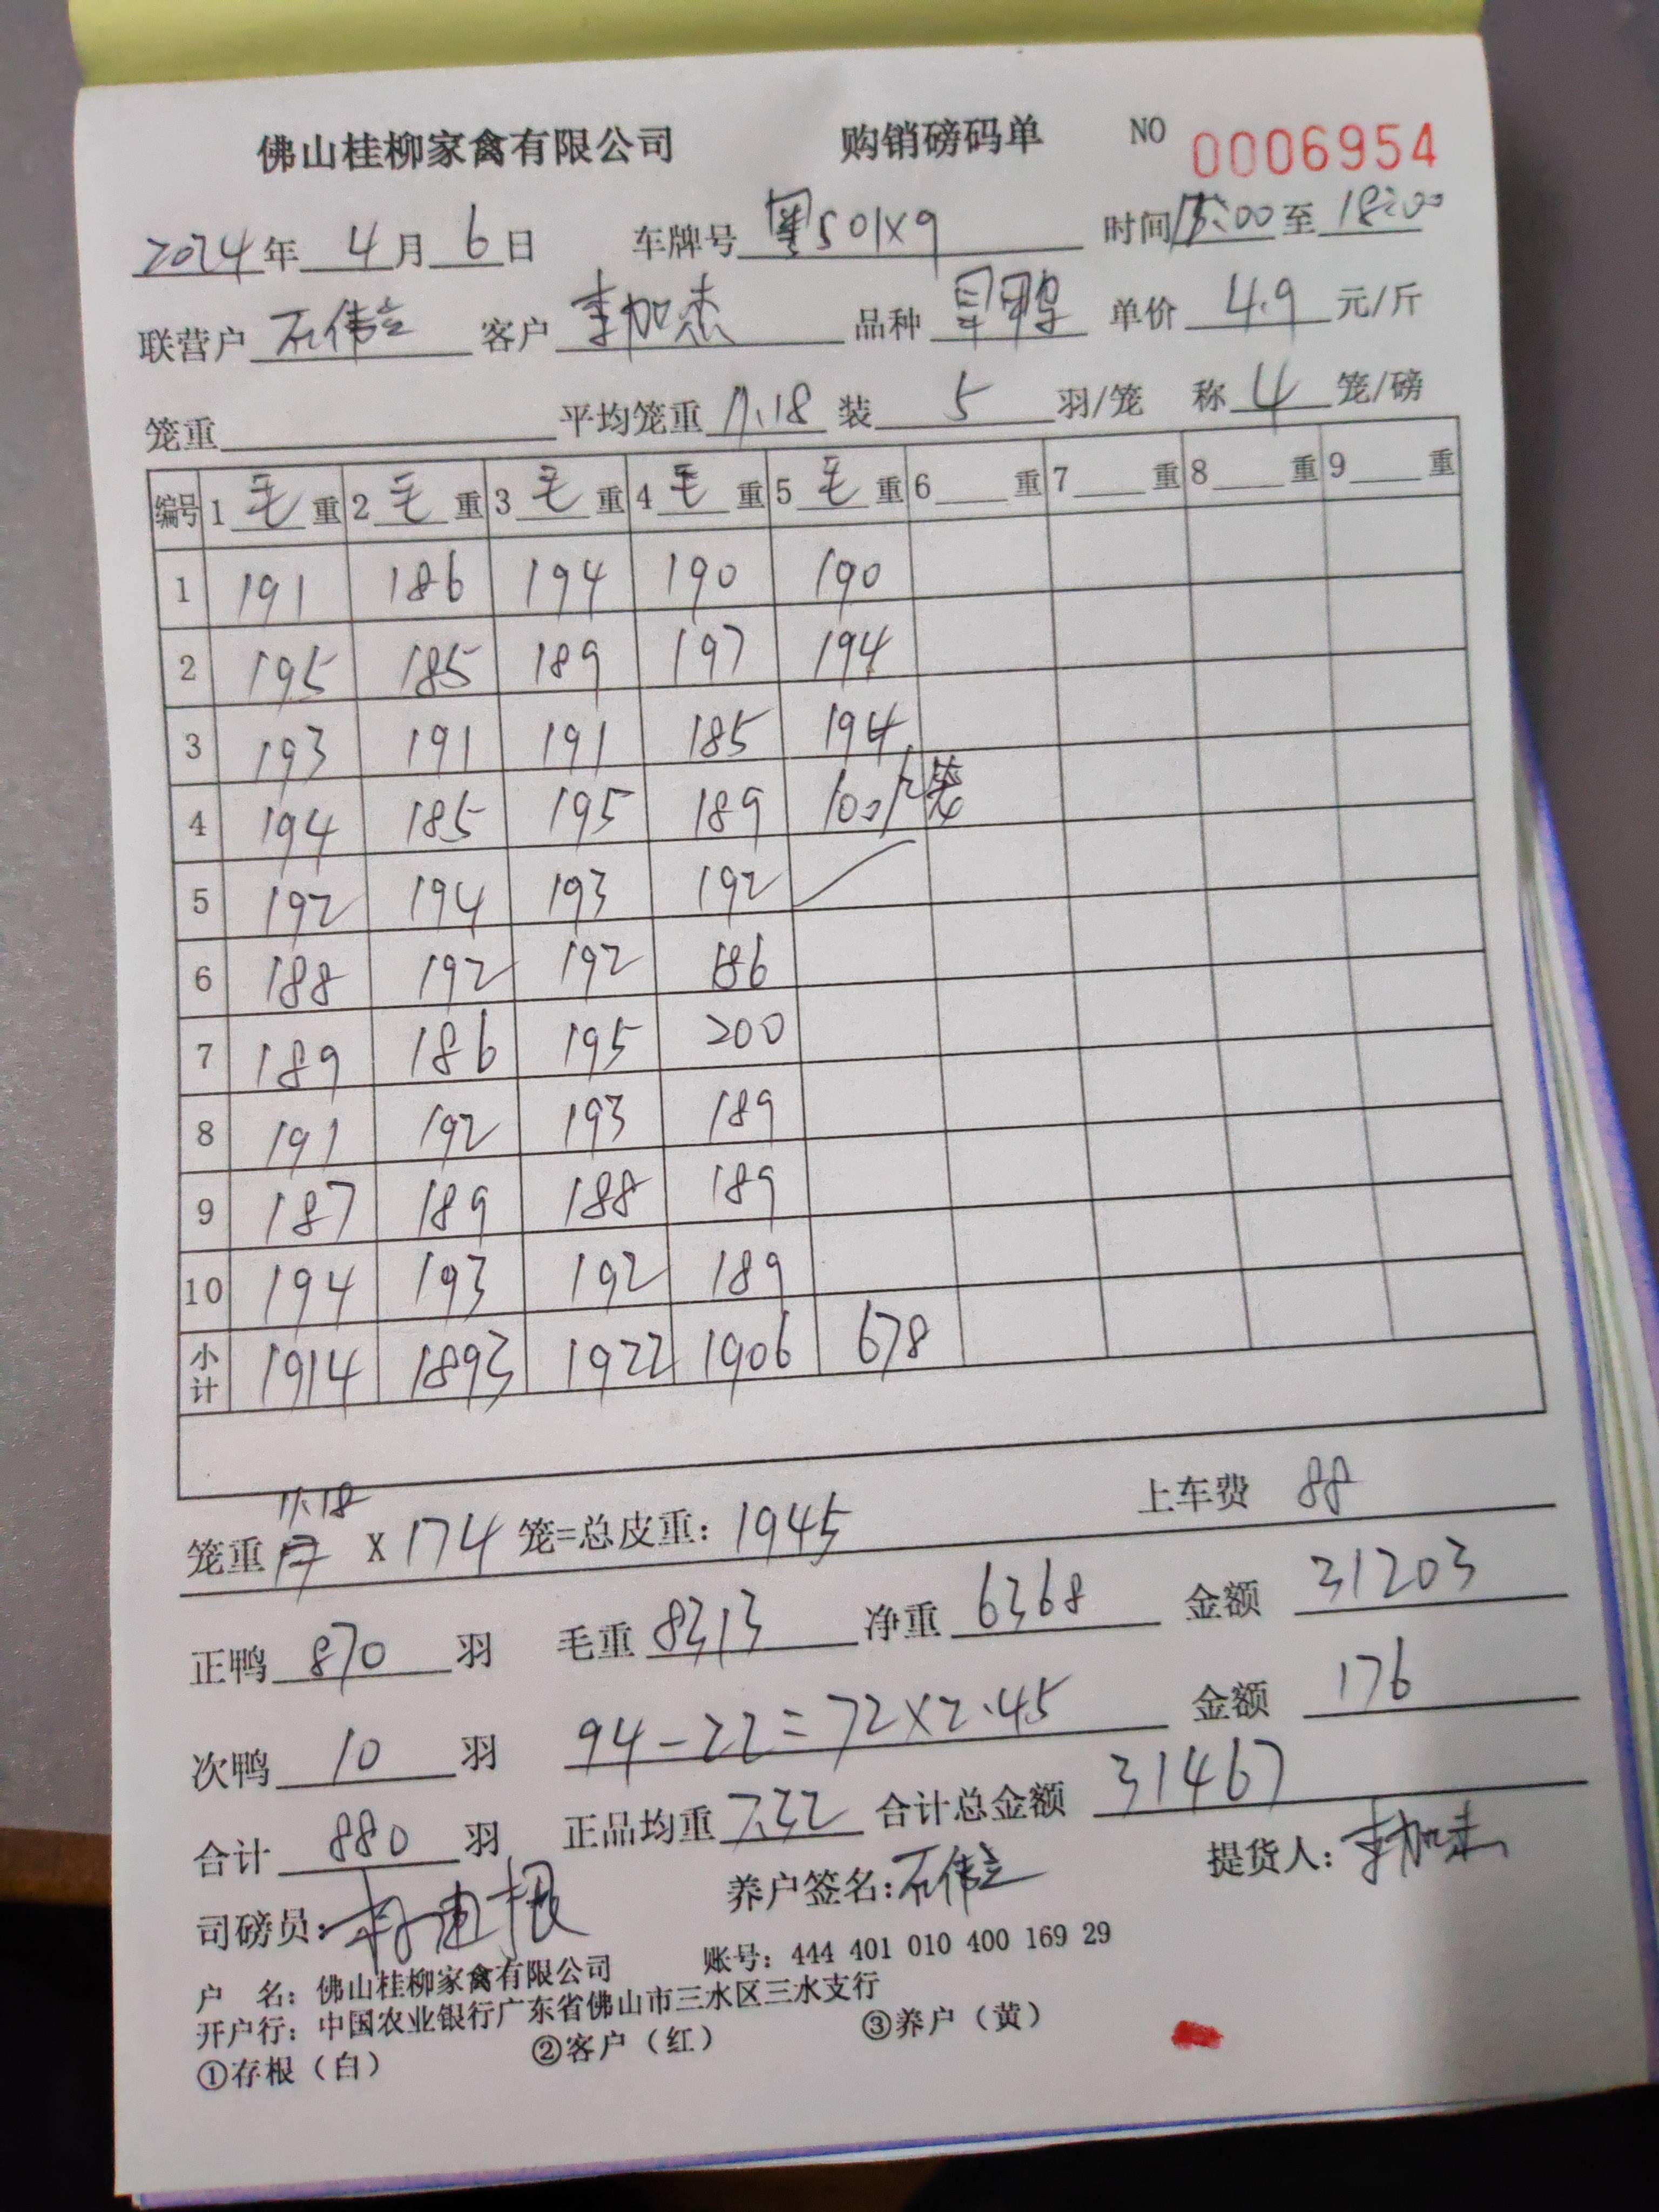 佛山桂柳家禽有限公司 购销磅码单 NO 0006954
2024年 4月 6日 车牌号 粤S01X9 时间 15:00 至 18:00
联营户 石伟立 客户 李加杰 品种 单价 4.9 元/斤
笼重 平均笼重 11.18 装 5 羽/笼 称 4 笼/磅
编号 1 毛 重 2 毛 重 3 毛 重 4 毛 重 5 毛 重 6 重 7 重 8 重 9 重
1 191 186 194 190 190
2 195 185 189 197 194
3 193 191 191 185 194
4 194 185 195 189 100/2笼
5 192 194 193 192
6 188 192 192 186
7 189 186 195 200
8 191 192 193 189
9 187 189 188 189
10 194 193 192 189
小计 1914 1893 1922 1906 678
笼重 11.18 X 174 笼=总皮重: 1945 上车费 88
正鸭 870 羽 毛重 8313 净重 6368 金额 31203
次鸭 10 羽 94-22=72×2.45 金额 176
合计 880 羽 正品均重 7.32 合计总金额 31467
司磅员: 养户签名: 石伟立 提货人: 李加杰
户 名: 佛山桂柳家禽有限公司 账号: 444 401 010 400 169 29
开户行: 中国农业银行广东省佛山市三水区三水支行
①存根（白） ②客户（红） ③养户（黄）